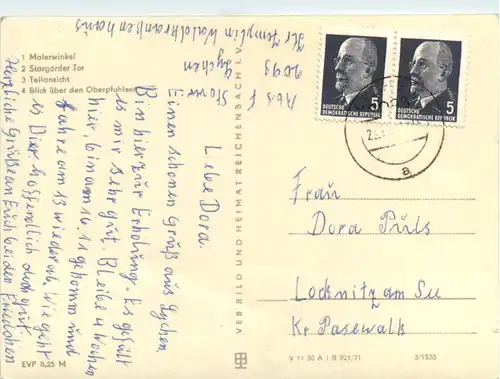 1 Malerwinkel
2 Stargarder Tor
3 Teilansicht
4 Blick über den Oberpfuhlsee
Lebe Dora.
Einen schönen Gruß aus Lychen
Bin hier zur Erholung. Es gefält
es mir sehr gut. Bleibe 4 Wochen
hier bin am 16.11 gekomm und
fahre am 13 wieder ab. Wie geht
es Dier hoffendlich doch gut.
Herzliche Grüße an Euch beiden
Abs
2093 Lychen
Kr Templin Waldkrankenhaus
VEB BILD UND HEIMAT REICHENBACH I. V.
DEUTSCHE
DEMOKRATISCHE REPUBLIK
5
DEUTSCHE
DEMOKRATISCHE REPUBLIK
5
a
Frau
Dora Puls
Locknitz am See
Kr Pasewalk
EVP 0,25 M
V 11 50 A 1 B 921/71
3/1555